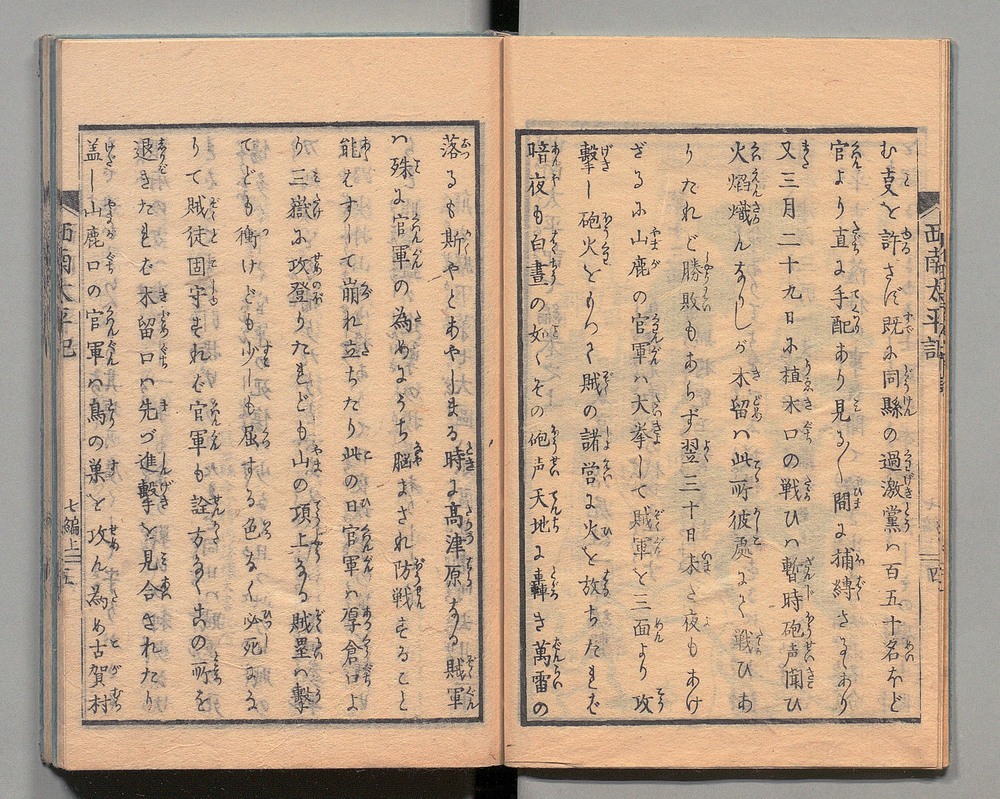 む支を許さに既に同縣の過激黨ハ百五十名ほど
官より直に手配あり見る〳〵間に捕縛さるゝあり
又三月二十九日に植木口の戦ひハ暫時砲声聞ひ
火焰熾んなりしが木留ハ此所彼處にて戦ひあ
りたれど勝敗もあらず翌三十日未だ夜もあけ
ざるに山鹿の官軍ハ大挙して賊軍を三面より攻
擊し砲火をもつて賊の諸営に火を放ちたれば
暗夜も白晝の如くその砲声天地に轟き萬雷の
西南太平記
四
落るも斯やとあやしまる時に髙津原なる賊軍
ハ殊に官軍の為めにうち脳まされ防戦すること
能はずして崩れ立ちたり此の日官軍ハ厚倉口よ
り三嶽に攻登りたれども山の項上なる賊塁ハ擊
てども衝けども少しも屈する色なく必死にな
りて賊徒固守すれば官軍も詮方なくこの所を
退きたれば木留口ハ先づ進擊を見合されたり
盖し山鹿口の官軍ハ鳥の巣を攻ん為め古賀村
西南太平記
七編上
五